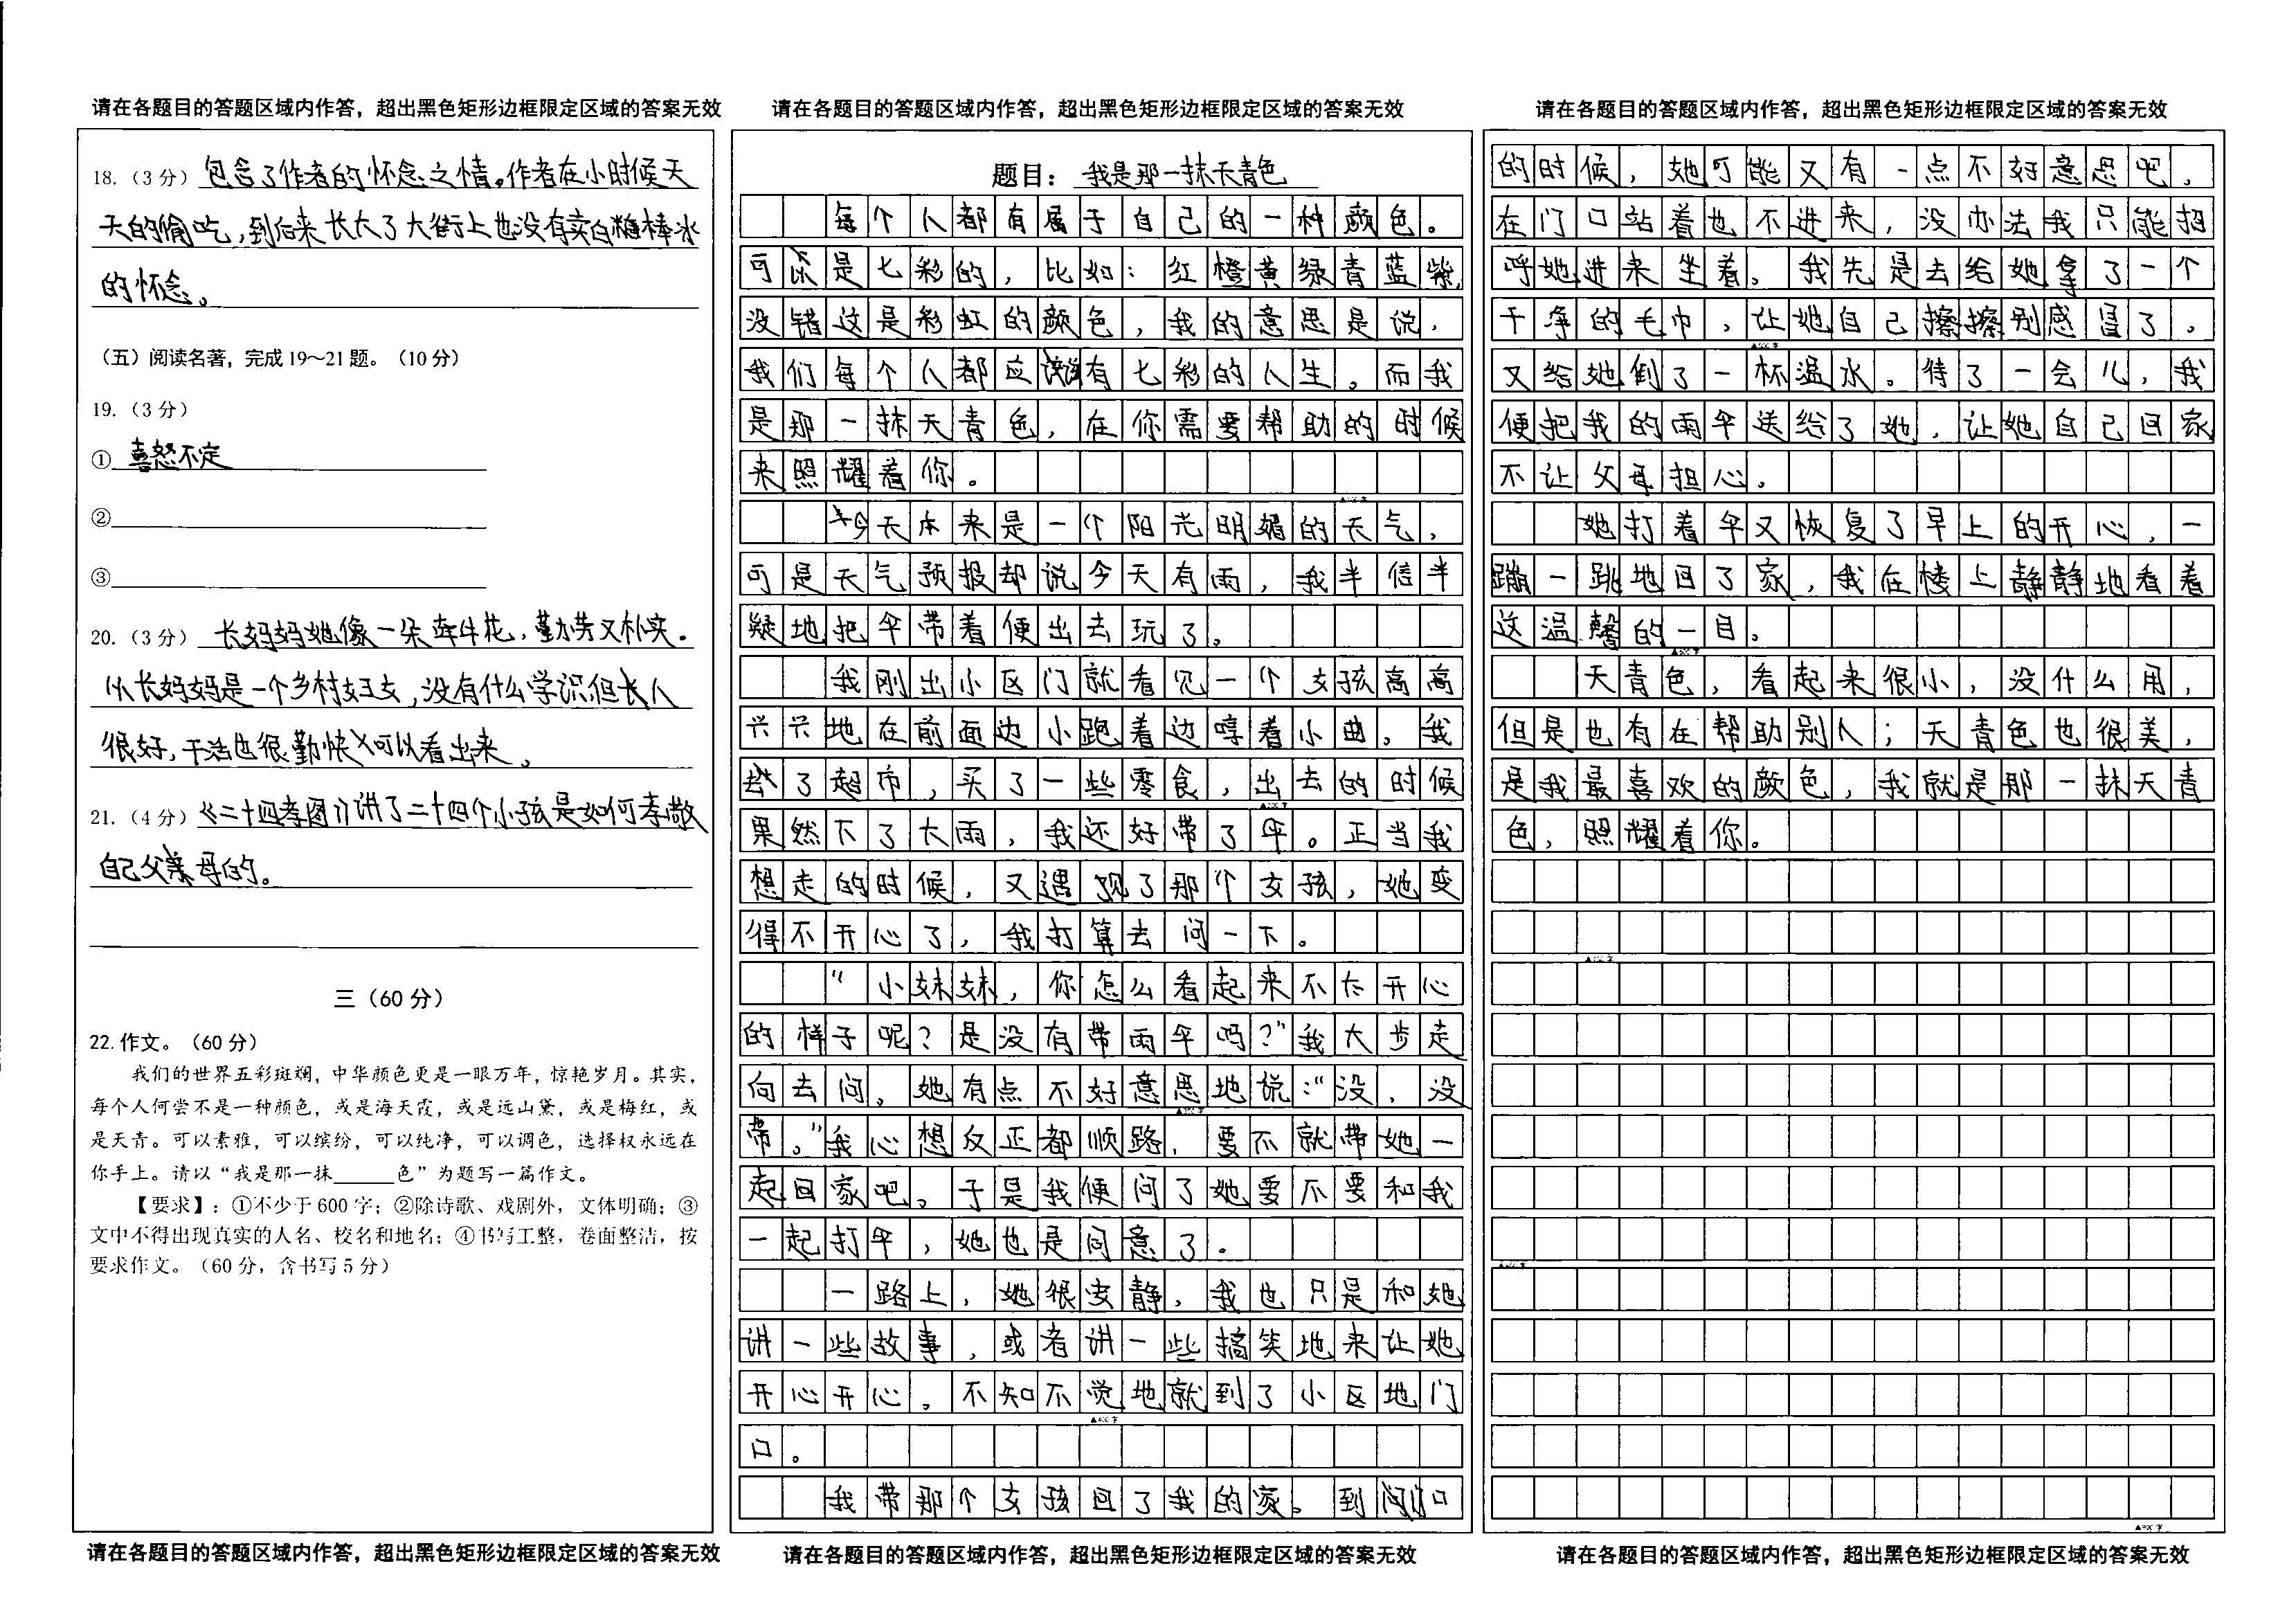 请在各题目的答题区域内作答，超出黑色矩形边框限定区域的答案无效
18.（3分）包含了作者的怀念之情。作者在小时候天
天的偷吃，到后来长大了大街上也没有卖白糖棒冰
的怀念。
（五）阅读名著，完成19～21题。（10分）
19.（3分）
① 喜怒不定
②
③
20.（3分）长妈妈她像一朵牵牛花，勤劳又朴实。
从长妈妈是一个乡村妇女，没有什么学识但长人
很好，干活也很勤快可以看出来。
21.（4分）《二十四孝图》讲了二十四个小孩是如何孝敬
自己父母的。
三（60分）
22.作文。（60分）
我们的世界五彩斑斓，中华颜色更是一眼万年，惊艳岁月。其实，
每个人何尝不是一种颜色，或是海天霞，或是远山黛，或是梅红，或
是天青。可以素雅，可以缤纷，可以纯净，可以调色，选择权永远在
你手上。请以“我是那一抹______色”为题写一篇作文。
【要求】：①不少于600字；②除诗歌、戏剧外，文体明确；③
文中不得出现真实的人名、校名和地名；④书写工整，卷面整洁，按
要求作文。（60分，含书写5分）
请在各题目的答题区域内作答，超出黑色矩形边框限定区域的答案无效
请在各题目的答题区域内作答，超出黑色矩形边框限定区域的答案无效
题目：我是那一抹天青色
每个人都有属于自己的一种颜色。
可是七彩的，比如：红橙黄绿青蓝紫，
没错这是彩虹的颜色，我的意思是说，
我们每个人都应有七彩的人生。而我
是那一抹天青色，在你需要帮助的时候
来照耀着你。
今天本来是一个阳光明媚的天气，
可是天气预报却说今天有雨，我半信半
疑地把伞带着便出去玩了。
我刚出小区门就看见一个女孩高高
兴兴地在前面边小跑着边哼着小曲，我
去了超市，买了一些零食，出去的时候
▲200字
果然下了大雨，我还好带了伞。正当我
想走的时候，又遇现了那个女孩，她变
得不开心了，我打算去问一下。
“小妹妹，你怎么看起来不太开心
的样子呢？是没有带雨伞吗？”我大步走
向去问。她有点不好意思地说：“没，没
带。”我心想反正都顺路，要不就带她一
起回家吧。于是我便问了她要不要和我
一起打伞，她也是同意了。
一路上，她很安静，我也只是和她
讲一些故事，或者讲一些搞笑地来让她
开心开心。不知不觉地就到了小区地门
▲400字
口。
我带那个女孩回了我的家。到门口
请在各题目的答题区域内作答，超出黑色矩形边框限定区域的答案无效
请在各题目的答题区域内作答，超出黑色矩形边框限定区域的答案无效
的时候，她可能又有一点不好意思吧，
在门口站着也不进来，没办法我只能招
呼她进来坐着。我先是去给她拿了一个
干净的毛巾，让她自己擦擦别感冒了。
又给她倒了一杯温水。待了一会儿，我
便把我的雨伞送给了她，让她自己回家
不让父母担心。
她打着伞又恢复了早上的开心，一
蹦一跳地回了家，我在楼上静静地看着
这温馨的一目。
天青色，看起来很小，没什么用，
但是也有在帮助别人；天青色也很美，
是我最喜欢的颜色，我就是那一抹天青
色，照耀着你。
▲900字
请在各题目的答题区域内作答，超出黑色矩形边框限定区域的答案无效